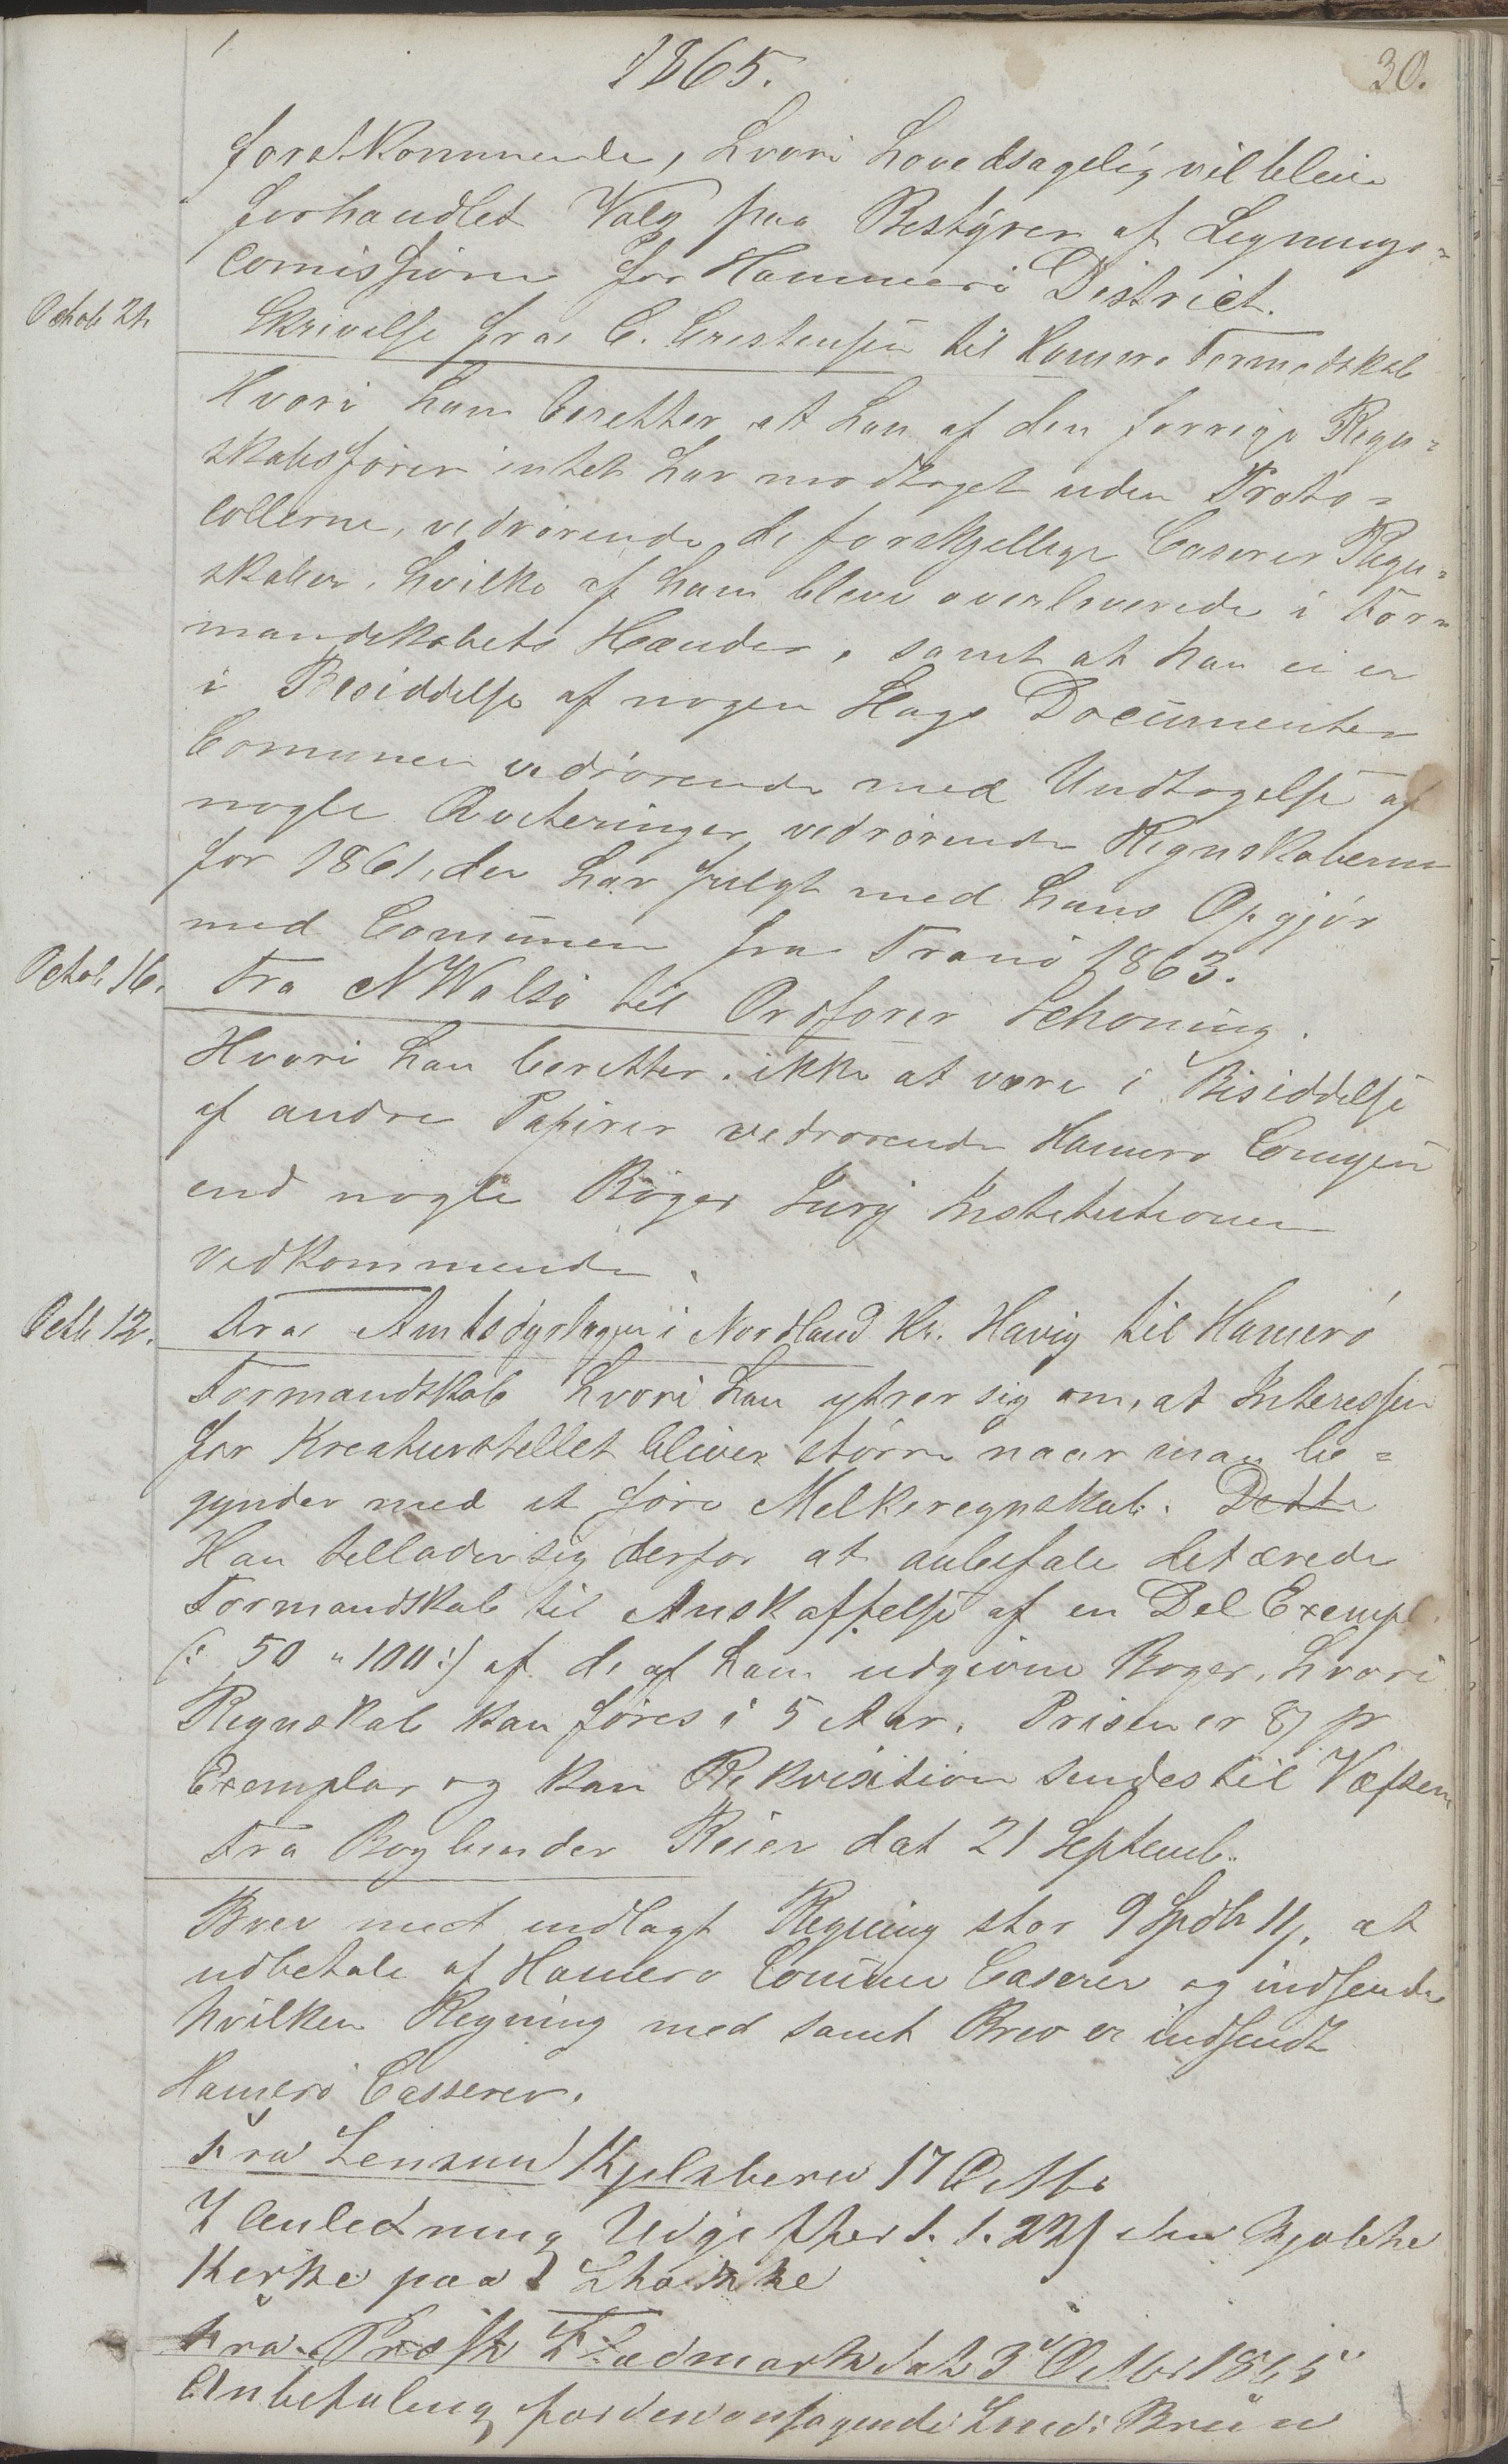 1865.
30.
foretkommende, hvori hovedsagelig vil blive
forhandlet Valg paa Bestyrer af Legnings=
Comissionen for Hammerö District.
Octob 24. Skrivelse fra C. Crestensen til Hamerø Formadskab
Hvori han beretter at han af den forrige Regn=
skabsfører intet har modtaget uden Proto=
collerne, vedrørende de forskjellige Caserer Regn=
skaber, hvilke af ham bleve overleverede i For=
mandskabets Hænder, samt at han ei er
i Besiddelse af nogen Slags Documenter
Comunen vedrørende med Undtagelse af
nogle Qviteringer vedrørende Regnskaberne
for 1861, der har fulgt med hans Opgjör
med Comünen fra Tranö 1863.
Octob 16. Fra N Walsö til Ordfører Schöning.
Hvori han beretter ikke at være i Besiddelse
af andre Papirer vedrørende Hamerø
end nogle Böger Jury Institutionen
vedkommende.
Octb 12. Fra Amtsdyrlægen i Nordland Hr. Havig til Hamerö
Formandskab hvori han ytrer sig om, at Interessen
for Kreaturstellet bliver större naar man be=
gynder med at føre Melkeregnskab. Dette
Han tillader sig derfor at anbefale det ærede
Formandskab til Anskaffelse af en Del Exempl.
(: 50 a 100 :) af de af ham udgivne Böger, hvori
Regnskab kan føres i 5 Aar. Prisen er 8 β pr
Exemplar og kan Rekvisition sendes til Vefsen
Fra Bogbinder Reier dat 21 Septemb.
Brev med indlagt Regning stor 9 Spdlr 11 β. at
udbetale af Hamerø Comune Caserer og indsende
hvilken Regning med samt Brev er indsendt
Hamerö Casserer.
Fra Lensmd Kjelsberu 17 Octbr
I Anledning Udgifther 1. 1. 22 β den
Kerke paa
Fra Præst Flædmark dat 3 Octbr 1865
Anbefaling for den ansøgende Bruun